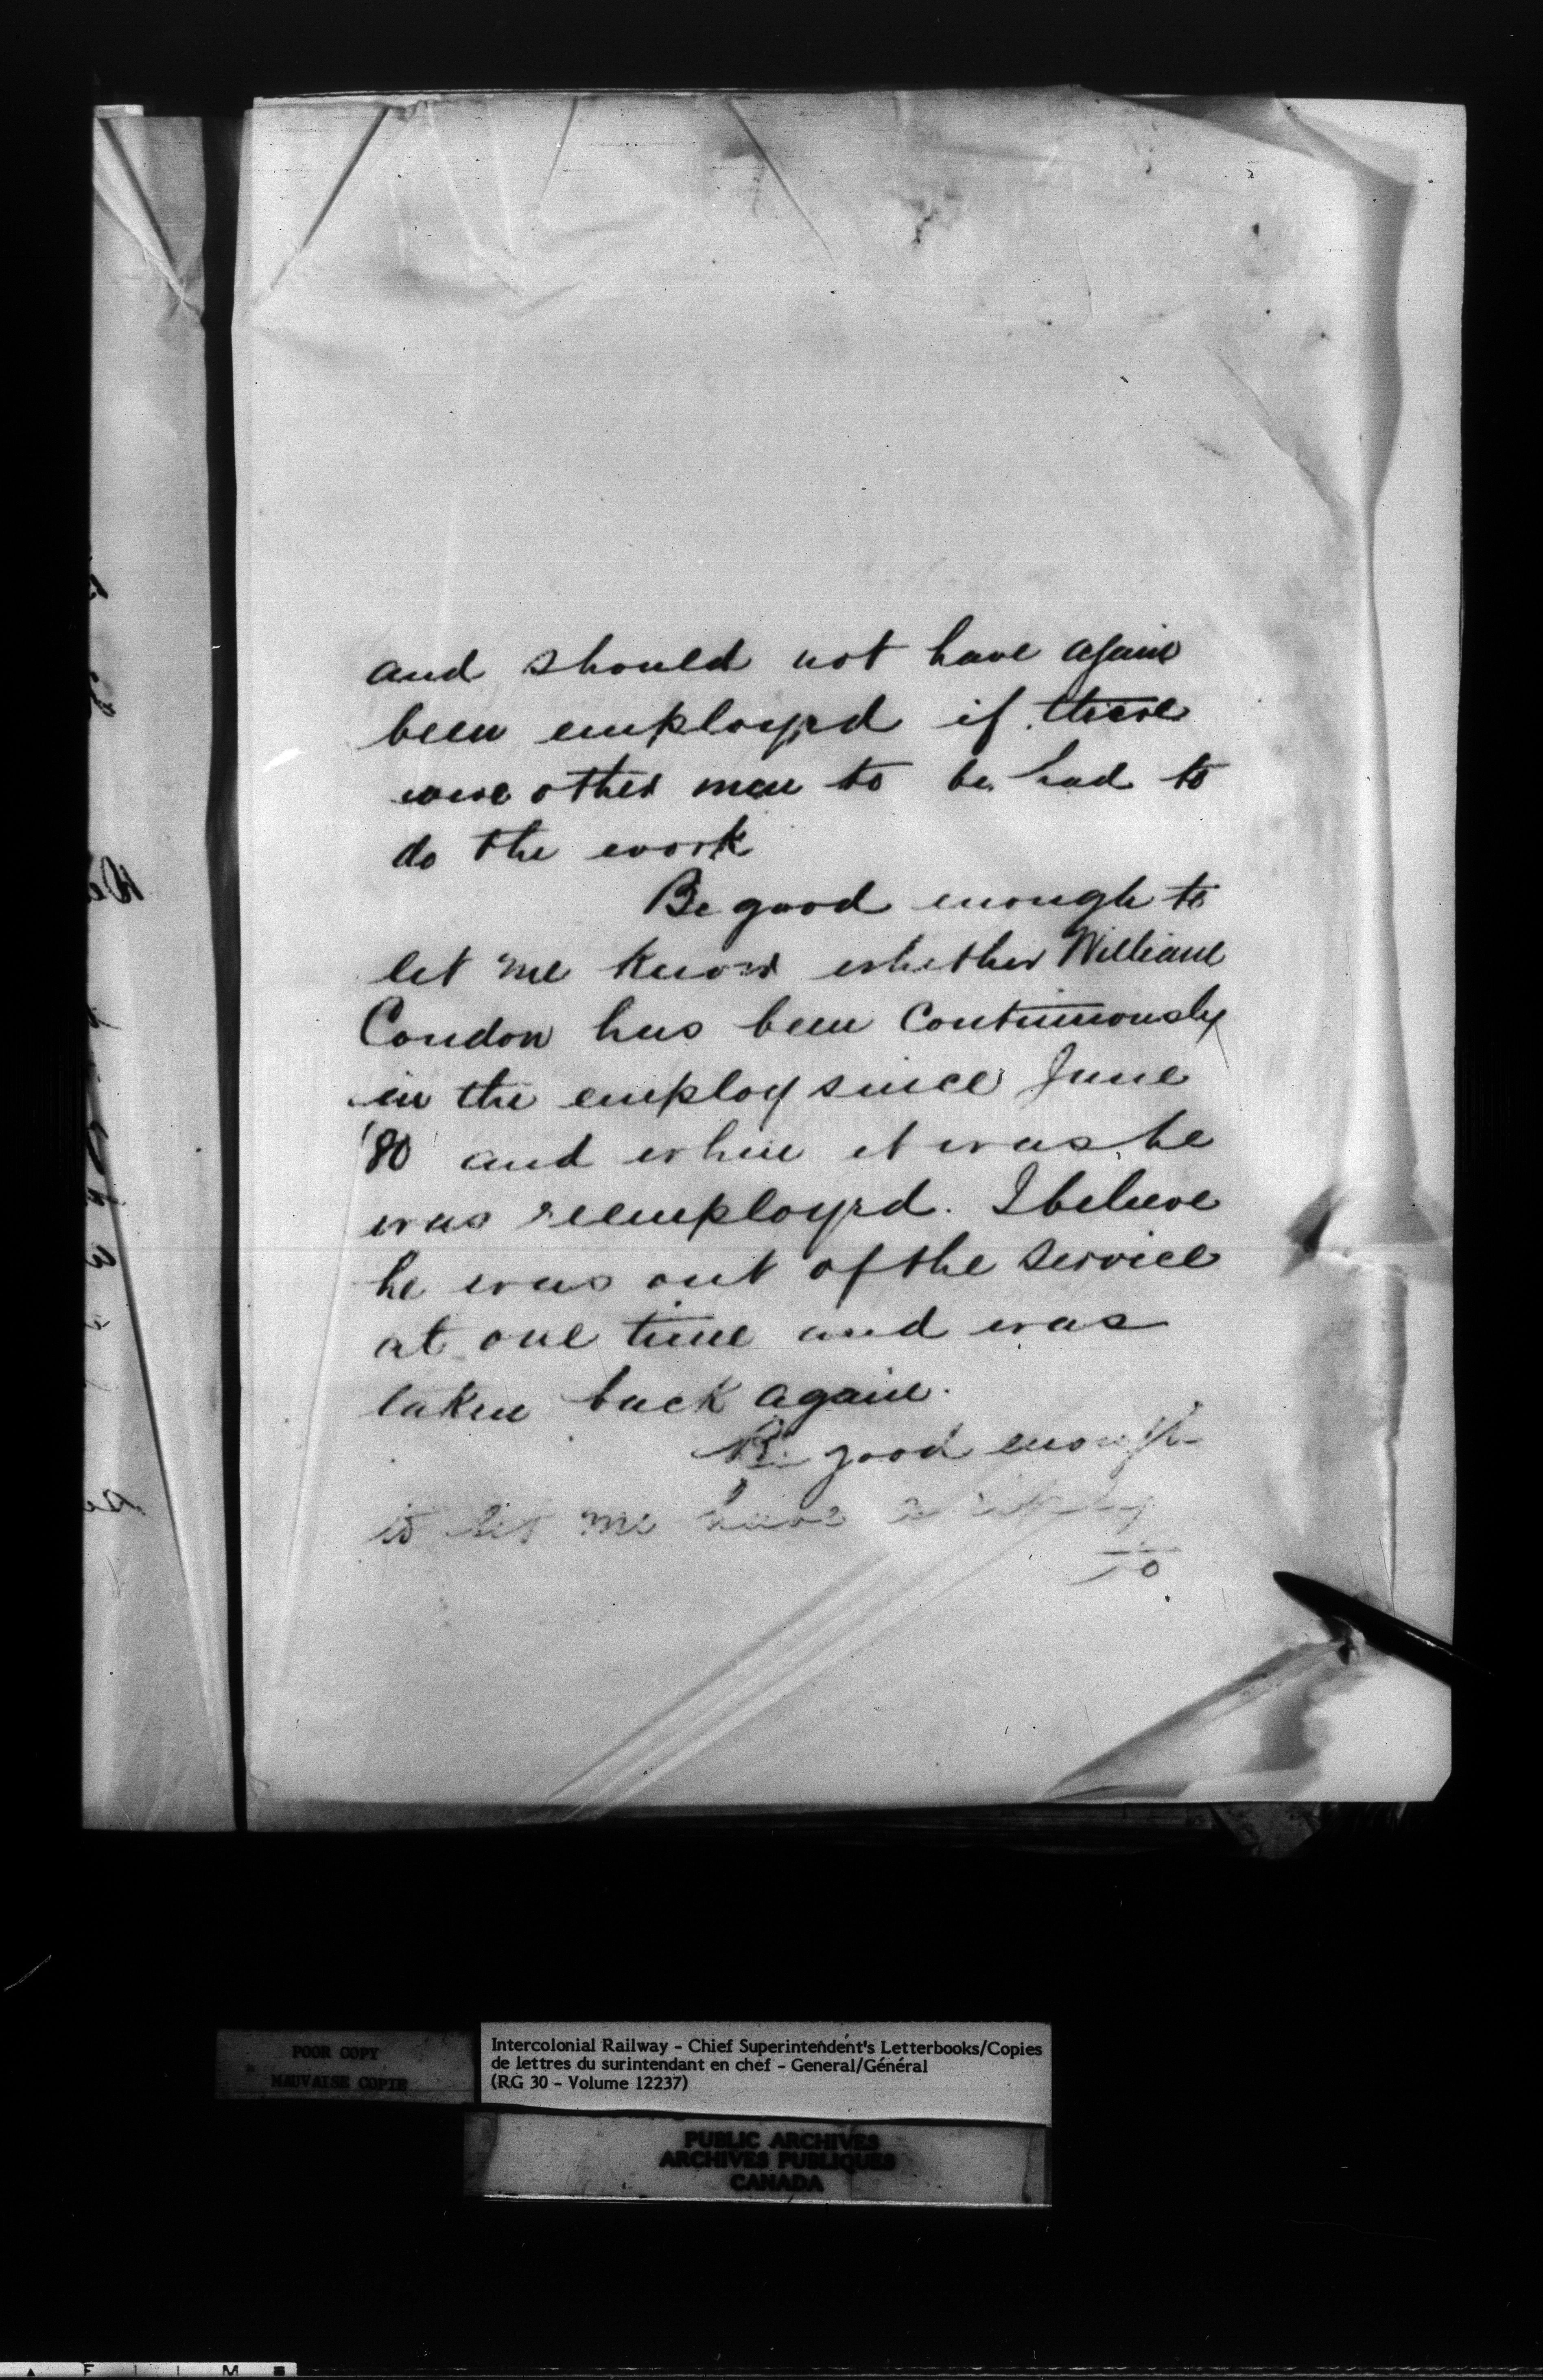 and should not have again
been employed if there
were other men to be had to
do the work
Be good enough to
let me know whether William
Condon has been continuously
in the employ since June
'80 and when it was he
was reemployed. I believe
he was out of the service
at one time and was
taken back again.
Be good enough
to let me have a reply
to
POOR COPY
MAUVAISE COPIE
Intercolonial Railway - Chief Superintendent's Letterbooks/Copies
de lettres du surintendant en chef - General/Général
(RG 30 - Volume 12237)
PUBLIC ARCHIVES
ARCHIVES PUBLIQUES
CANADA